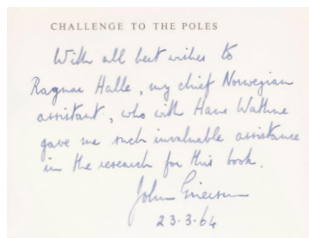 CHALLENGE TO THE POLES
With all best wishes to
Ragnar Halle, my chief Norwegian
assistant, who with Hans Wathne
gave me such invaluable assistance
in the research for this book.
John Grierson
23-3-64